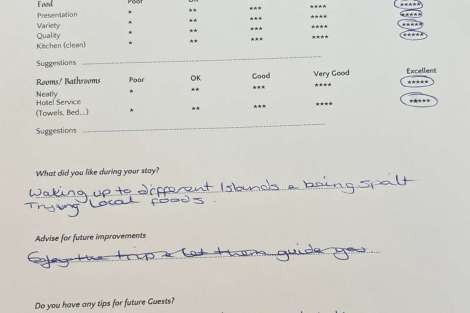 Food Poor OK
Presentation * ** *** **** *****
Variety * ** *** **** *****
Quality * ** *** **** *****
Kitchen (clean) * ** *** **** *****
Suggestions
Rooms/ Bathrooms Poor OK Good Very Good Excellent
Neatly * ** *** **** *****
Hotel Service
(Towels, Bed...) * ** *** **** *****
Suggestions
What did you like during your stay?
Waking up to different Islands & being spalt
Trying Local foods.
Advise for future improvements
Enjoy the trip & let them guide you
Do you have any tips for future Guests?